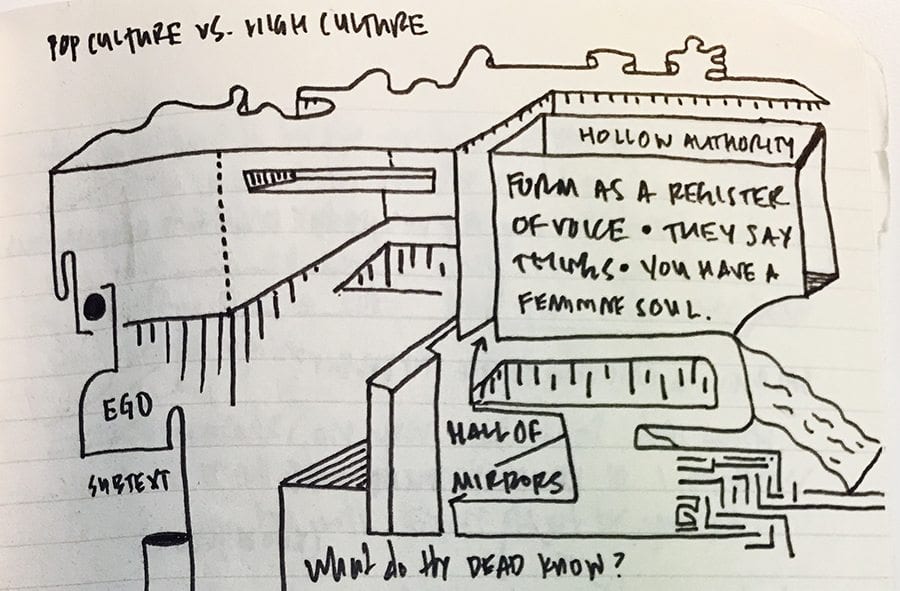 POP CULTURE VS. HIGH CULTURE
HOLLOW AUTHORITY
FORM AS A REGISTER
OF VOICE • THEY SAY
THINGS • YOU HAVE A
FEMININE SOUL.
EGO
SUBTEXT
HALL OF
MIRRORS
What do thy DEAD KNOW?